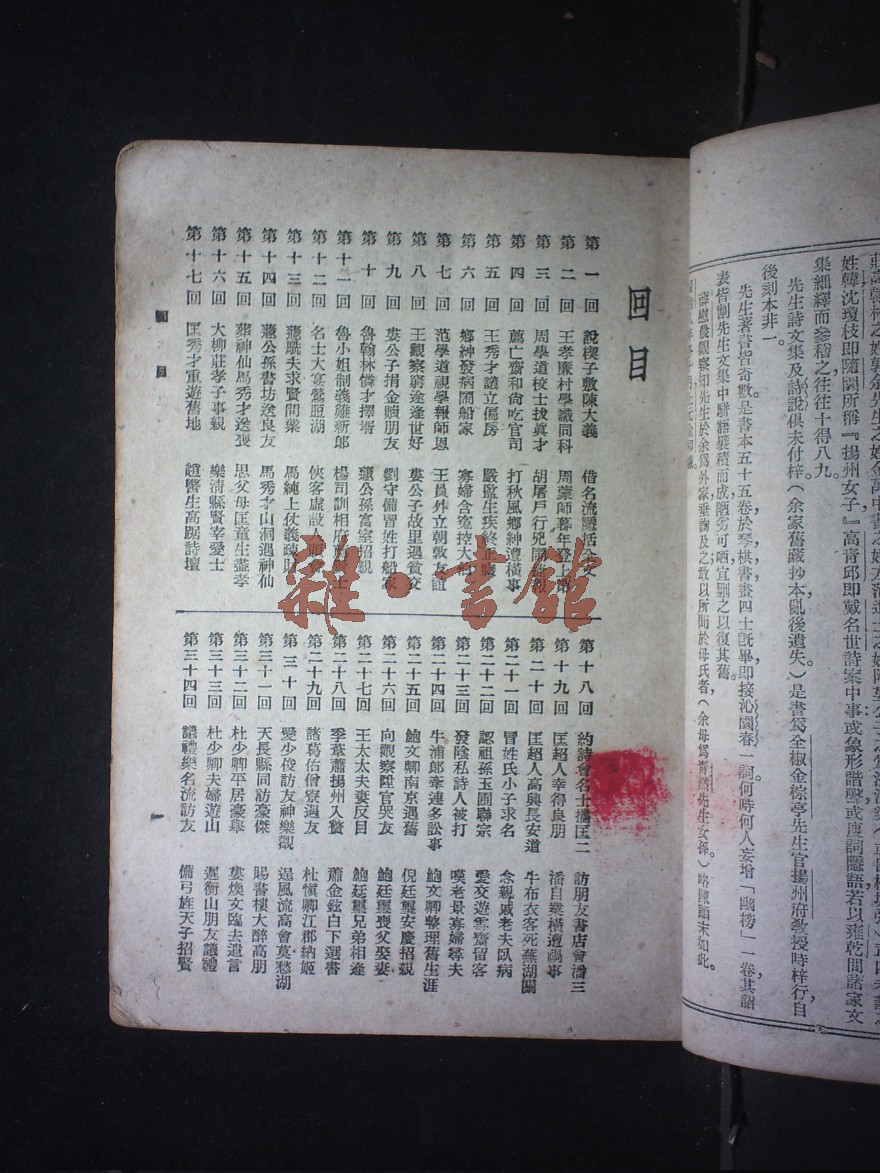 集細繹而參稽之往往十得八九。
先生詩文集及詩說俱未付梓。(余家舊藏抄本亂後遺失。)是書為全椒金棕亭先生官揚州府教授時梓行自
後刻本非一。
先生著書皆奇數。是書本五十五卷於琴棋書畫四士既畢即接沁園春一詞何時何人妄增『幽榜』一卷其詔
表皆割先生文集中駢語襞積而成陋劣可哂宜刪之以復其舊。
回目
第一回 說楔子敷陳大義 借名流隱括全文
第二回 王孝廉村學識同科 周蒙師暮年登上第
第三回 周學道校士拔眞才 胡屠戶行兇鬧捷報
第四回 薦亡齋和尙吃官司 打秋風鄉紳遭橫事
第五回 王秀才議立偏房 嚴監生疾終正寢
第六回 鄉紳發病鬧船家 寡婦含寃控大伯
第七回 范學道視學報師恩 王員外立朝敦友誼
第八回 王觀察窮途逢世好 婁公子故里遇貧交
第九回 婁公子捐金贖朋友 劉守備冒姓打船家
第十回 魯翰林憐才擇壻 蘧公孫富室招親
第十一回 魯小姐制義難新郎 楊司訓相府薦賢士
第十二回 名士大宴鶯脰湖 俠客虛設人頭會
第十三回 蘧駪夫求賢問業 馬純上仗義疎財
第十四回 蘧公孫書坊送良友 馬秀才山洞遇神仙
第十五回 葬神仙馬秀才送喪 思父母匡童生盡孝
第十六回 大柳莊孝子事親 樂淸縣賢宰愛士
第十七回 匡秀才重遊舊地 趙醫生高踞詩壇
第十八回 約詩會名士攜匡二 訪朋友書店會潘三
第十九回 匡超人幸得良朋 潘自業橫遭禍事
第二十回 匡超人高興長安道 牛布衣客死蕪湖關
第二十一回 冒姓氏小子求名 念親戚老夫臥病
第二十二回 認祖孫玉圃聯宗 愛交遊雪齋留客
第二十三回 發陰私詩人被打 嘆老景寡婦尋夫
第二十四回 牛浦郎牽連多訟事 鮑文卿整理舊生涯
第二十五回 鮑文卿南京遇舊 倪廷璽安慶招親
第二十六回 向觀察陞官哭友 鮑廷璽喪父娶妻
第二十七回 王太太夫妻反目 鮑廷璽兄弟相逢
第二十八回 季葦蕭揚州入贅 蕭金鉉白下選書
第二十九回 諸葛佑僧寮遇友 杜愼卿江郡納姬
第三十回 愛少俊訪友神樂觀 逞風流高會莫愁湖
第三十一回 天長縣同訪豪傑 賜書樓大醉高朋
第三十二回 杜少卿平居豪舉 婁煥文臨去遺言
第三十三回 杜少卿夫婦遊山 遲衡山朋友議禮
第三十四回 議禮樂名流訪友 備弓旌天子招賢
回目
一
雜·書館